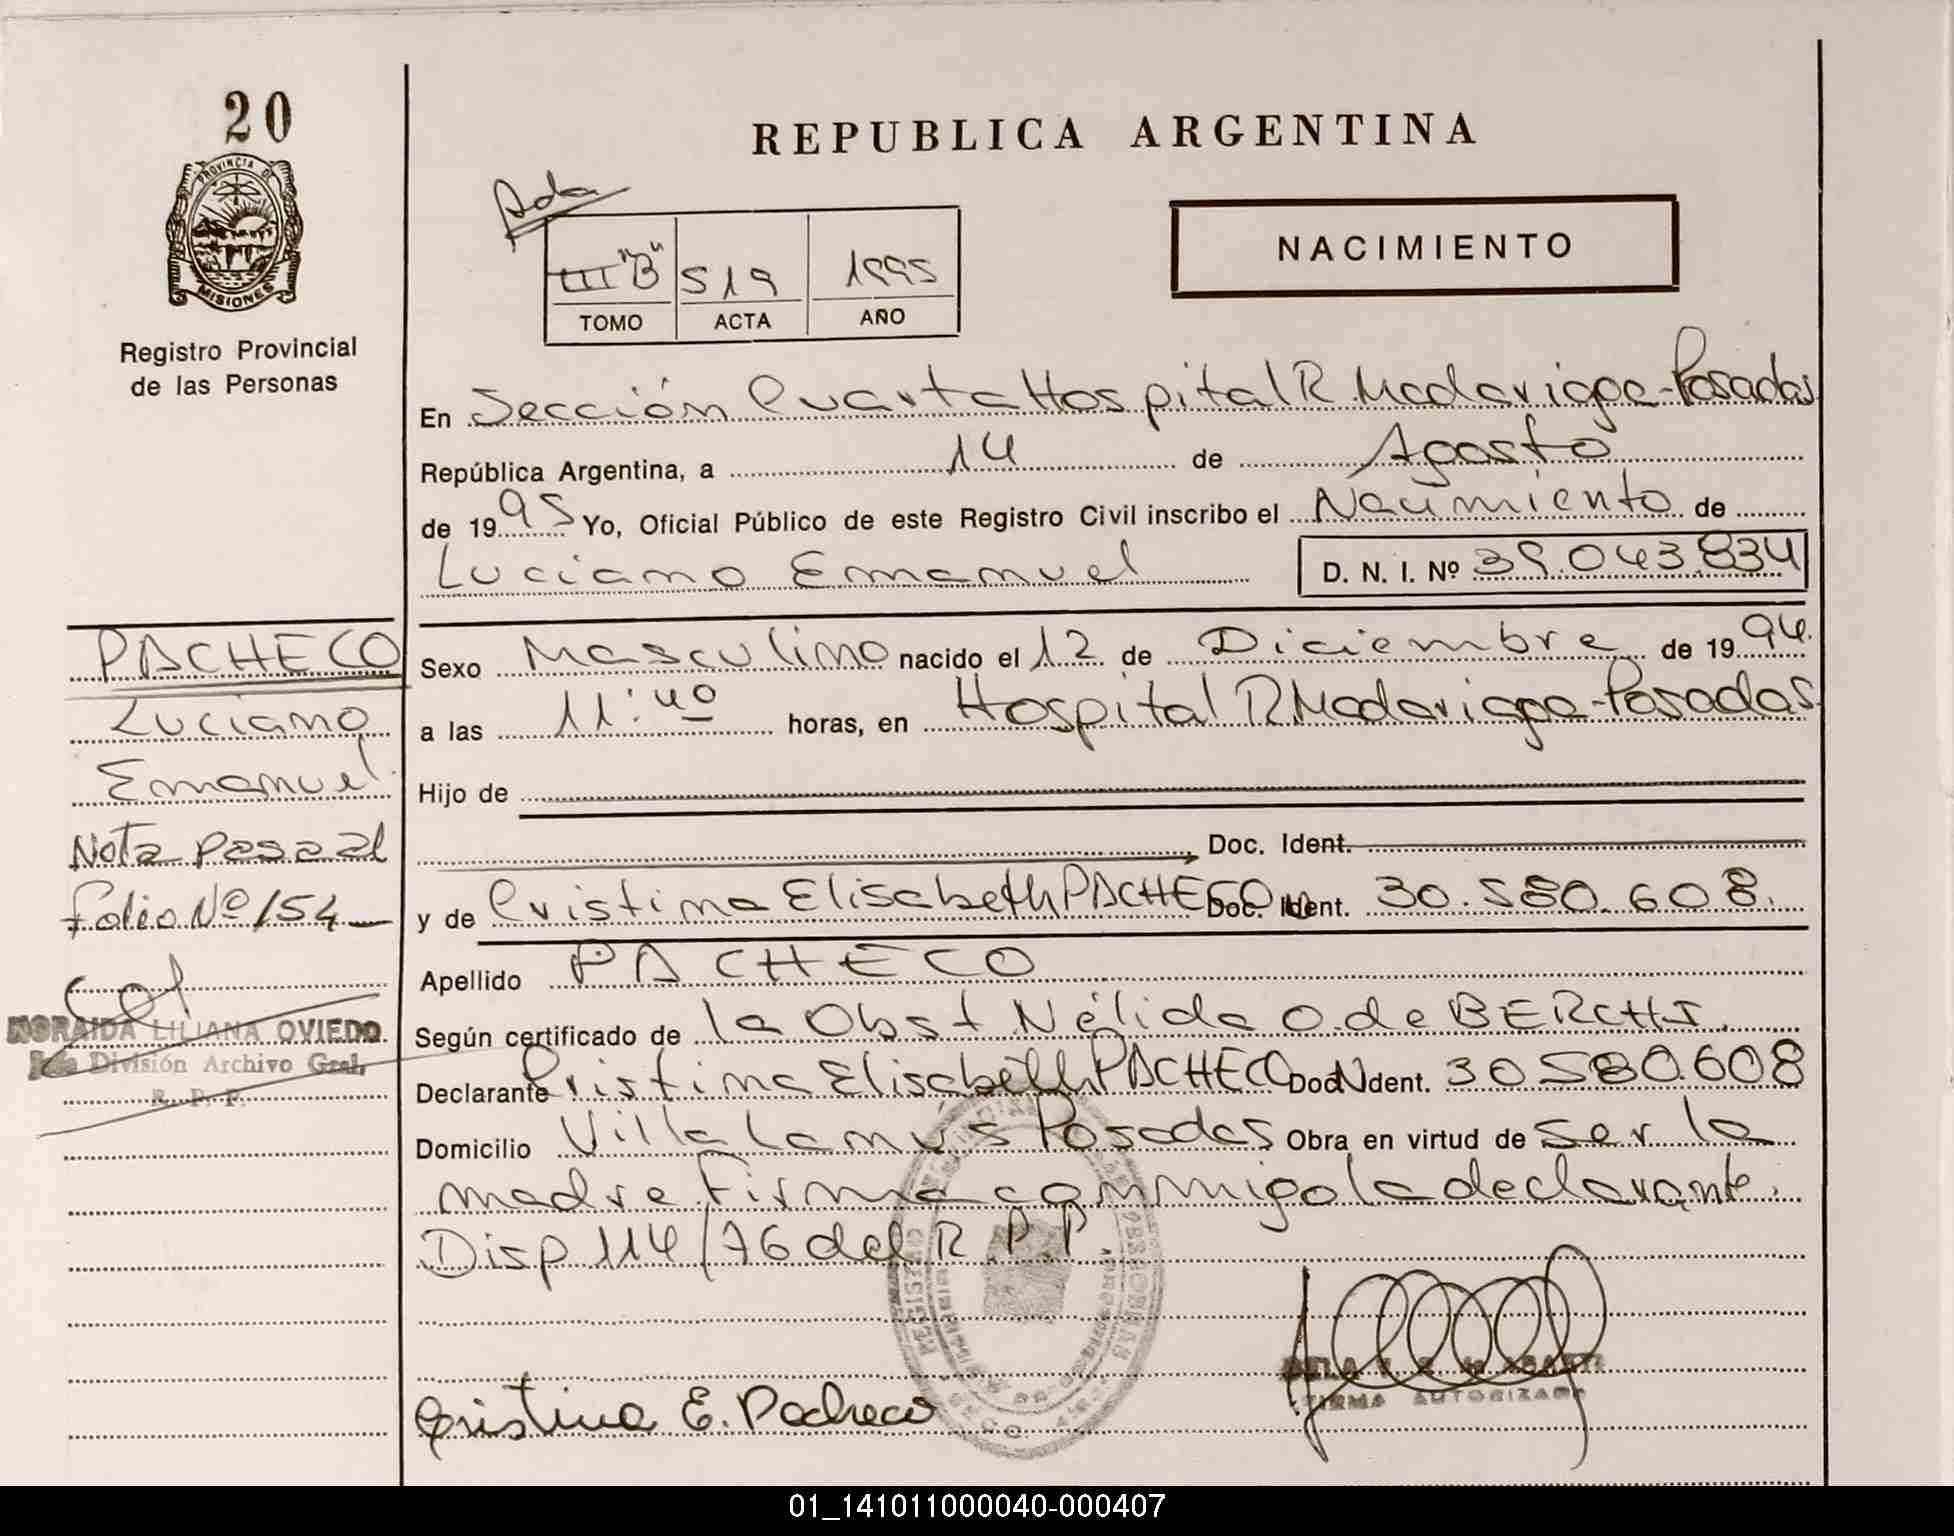 20
PROVINCIA DE
MISIONES
Registro Provincial
de las Personas
REPUBLICA ARGENTINA
III "B" 519 1995
TOMO ACTA AÑO
NACIMIENTO
En Sección Cuarta Hospital R. Madariaga - Posadas
República Argentina, a 14 de Agosto
de 1995 Yo, Oficial Público de este Registro Civil inscribo el Nacimiento de
Luciano Emanuel D. N. I. Nº 39.043.834
PACHECO
Luciano
Emanuel
Nota pasa al
folio Nº 154
NORAIDA LILIANA OVIEDO
Jefa División Archivo Gral.
R. P. P.
Sexo Masculino nacido el 12 de Diciembre de 1994.
a las 11:40 horas, en Hospital R Madariaga - Posadas
Hijo de
Doc. Ident.
y de Cristina Elisabeth PACHECO Doc. Ident. 30.580.608.
Apellido PACHECO
Según certificado de la Obst Nélida O. de BERCHI.
Declarante Cristina Elisabeth PACHECO Doc Ident. 30580.608
Domicilio Villa Lanús Posadas Obra en virtud de ser la
madre. Firma conmigo la declarante.
Disp 114/76 del R.P.P.
FIRMA AUTORIZADA
Cristina E. Pacheco
01_141011000040-000407